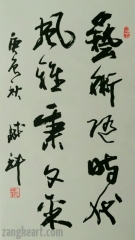 藝術随時代
風雅秉文采
秋
zangheart.com